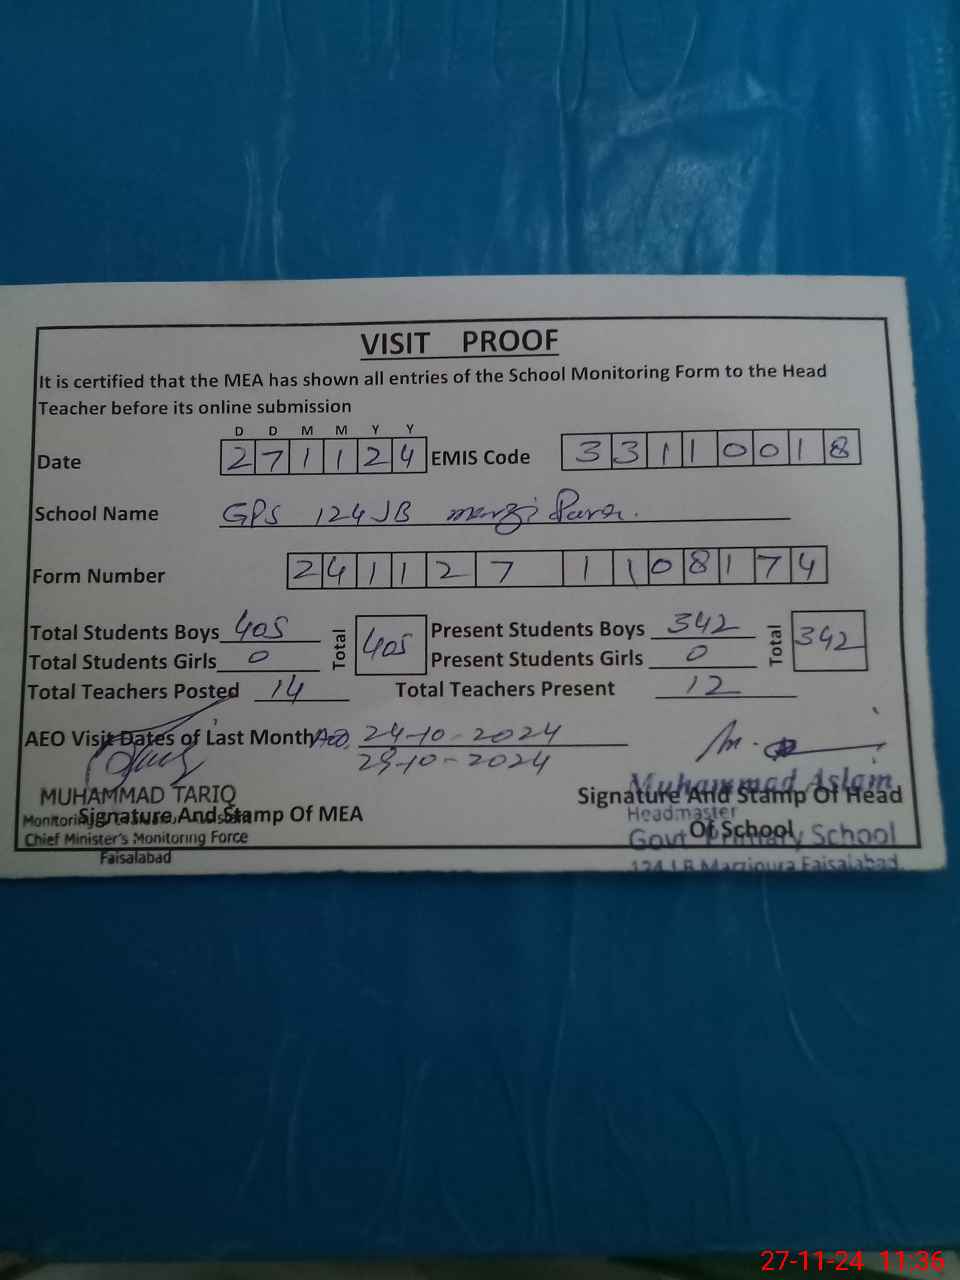 VISIT PROOF
It is certified that the MEA has shown all entries of the School Monitoring Form to the Head
Teacher before its online submission
D D M M Y Y
Date 2 7 1 1 2 4 EMIS Code 3 3 1 1 0 0 1 8
School Name GPS 124 JB marzi Pura.
Form Number 2 4 1 1 2 7 1 1 0 8 1 7 4
Total Students Boys 405 Total 405 Present Students Boys 342 Total 342
Total Students Girls 0 Present Students Girls 0
Total Teachers Posted 14 Total Teachers Present 12
AEO Visit Dates of Last Month AEO 24-10-2024
29-10-2024
MUHAMMAD TARIQ Muhammad Aslam
Signature And Stamp Of MEA Signature And Stamp Of Head
Monitoring Headmaster
Of School
Chief Minister's Monitoring Force Govt Primary School
Faisalabad 124 J.B Marzipura Faisalabad.
27-11-24 11:36